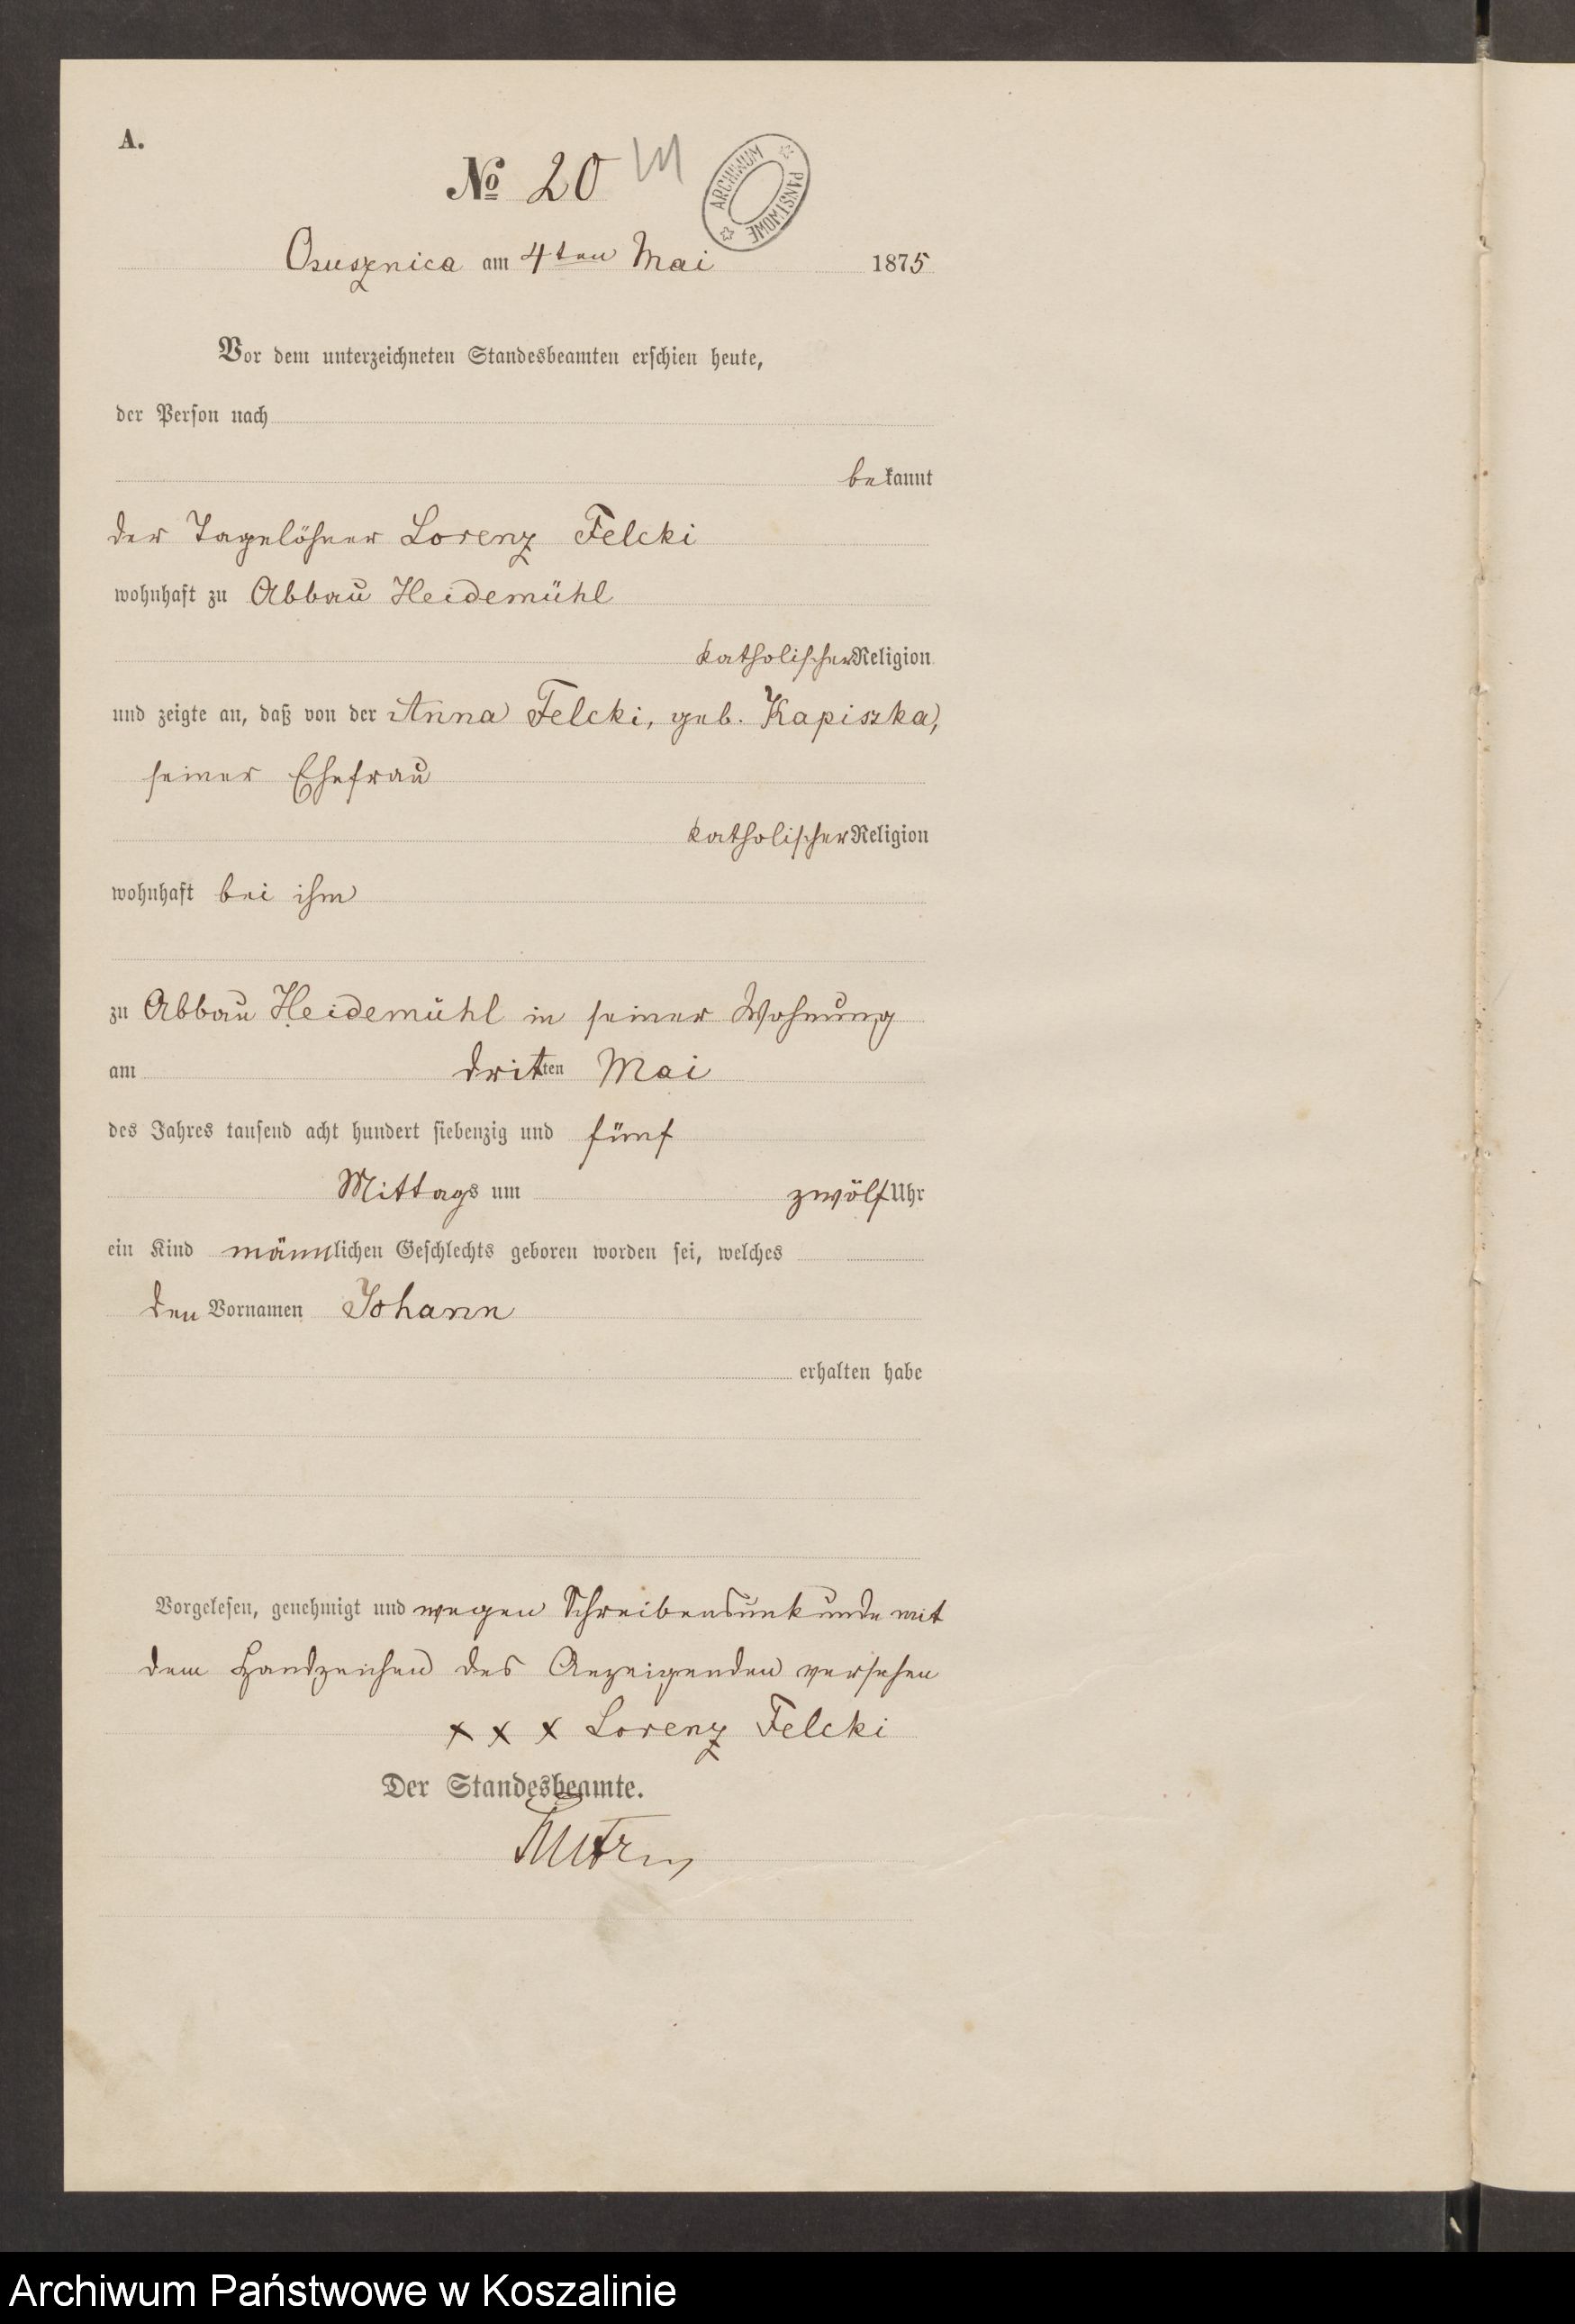 A.
№ 20
ARCHIWUM PAŃSTWOWE
Osusznica am 4ten Mai 1875
Vor dem unterzeichneten Standesbeamten erschien heute,
der Person nach
bekannt
der Tagelöhner Lorenz Felcki
wohnhaft zu Abbau Heidemühl
katholischer Religion
und zeigte an, daß von der Anna Felcki, geb. Kapiszka,
seiner Ehefrau
katholischer Religion
wohnhaft bei ihm
zu Abbau Heidemühl in seiner Wohnung
am dritten Mai
des Jahres tausend acht hundert siebenzig und fünf
Mittags um zwölf Uhr
ein Kind männlichen Geschlechts geboren worden sei, welches
den Vornamen Johann
erhalten habe
Vorgelesen, genehmigt und wegen Schreibensunkunde mit
dem Handzeichen des Anzeigenden versehen
x x x Lorenz Felcki
Der Standesbeamte.
Archiwum Państwowe w Koszalinie